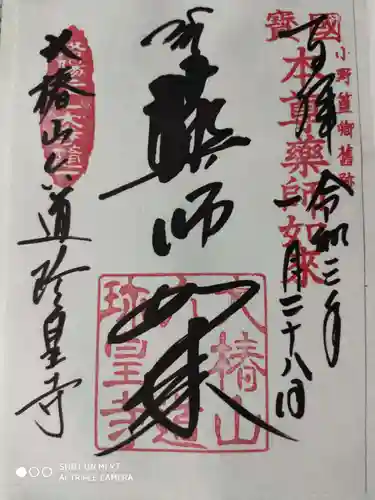 奉拝
令和三年
一月二十八日
小野篁卿舊跡
國寶
本尊藥師如來
藥師如来
大椿山
六道
珍皇寺
大椿山六道珍皇寺
SHOT ON MI 9T
AI TRIPLE CAMERA